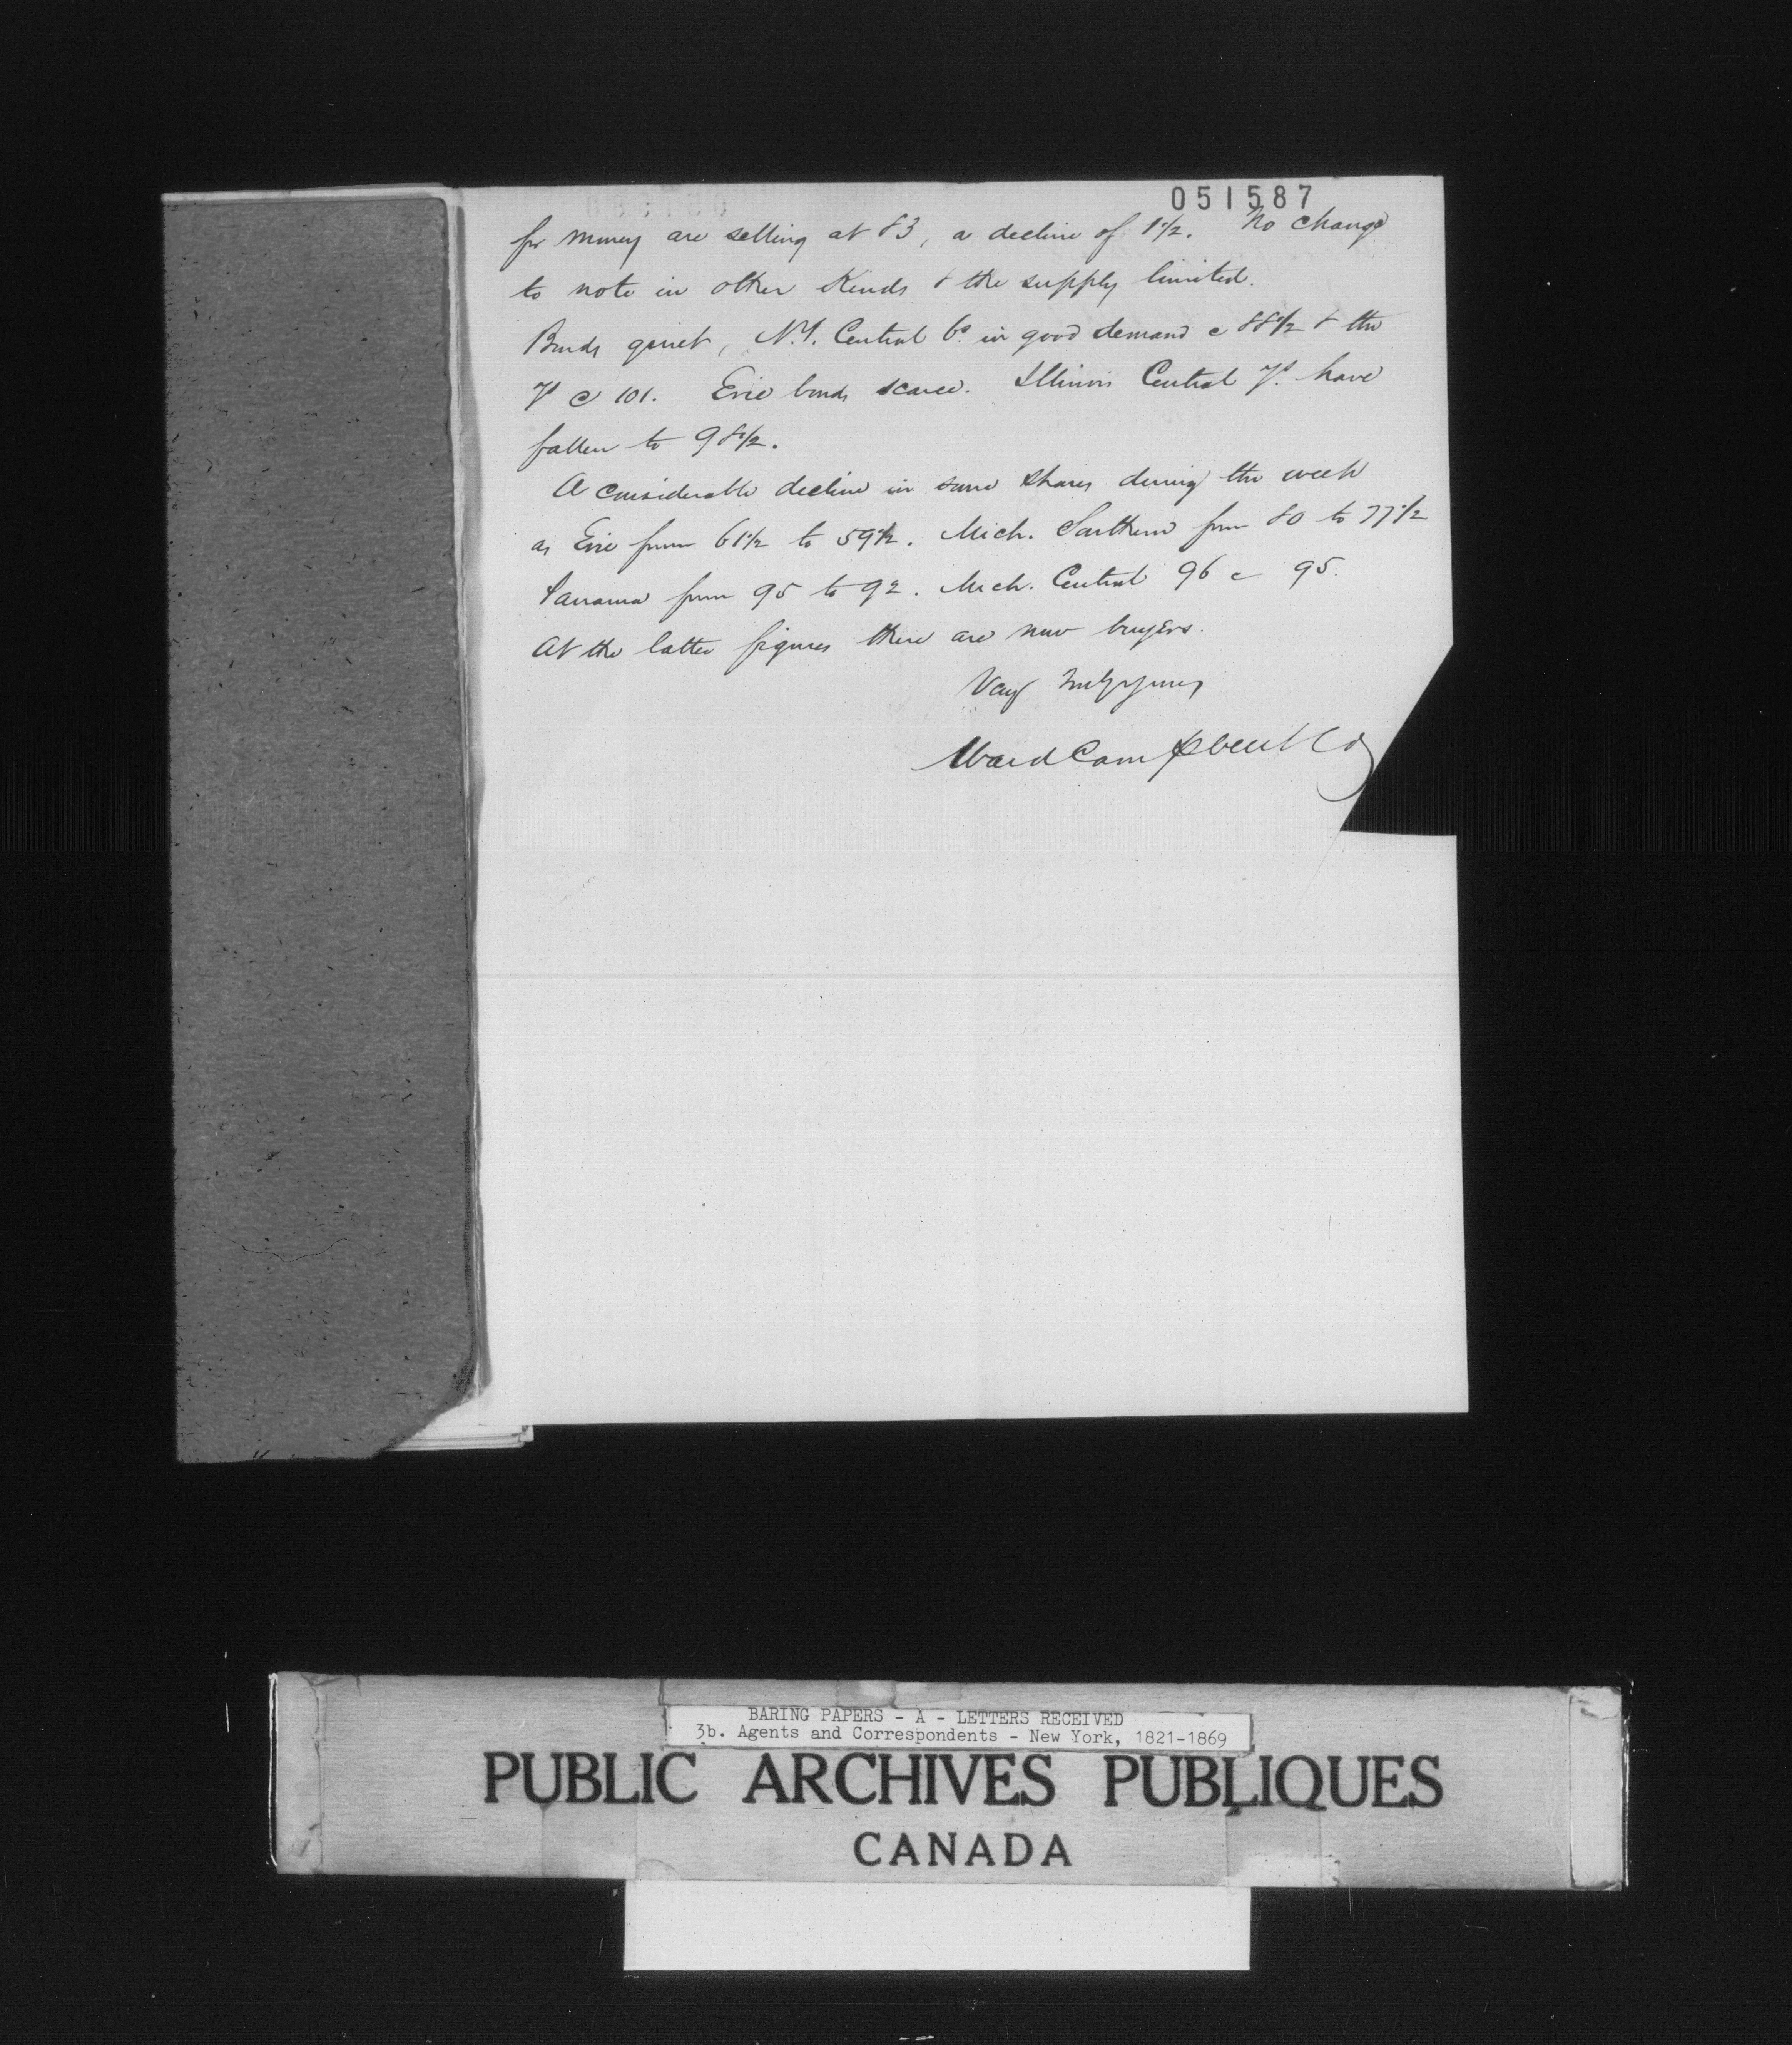 051587
for money are selling at 83, a decline of 1 1/2. No change
to note in other kinds & the supply limited.
Bonds quiet, N.Y. Central 6s in good demand @ 88 1/2 & the
7s @ 101. Erie bonds scarce. Illinois Central 7s have
fallen to 98 1/2.
A considerable decline in some shares during the week
as Erie from 61 1/2 to 59 1/2. Mich. Southern from 80 to 77 1/2
Panama from 95 to 92. Mich. Central 96 @ 95.
At the latter figures there are now buyers.
Very truly yours
Ward Campbell & Co
BARING PAPERS - A - LETTERS RECEIVED
3b. Agents and Correspondents - New York, 1821-1869
PUBLIC ARCHIVES PUBLIQUES
CANADA